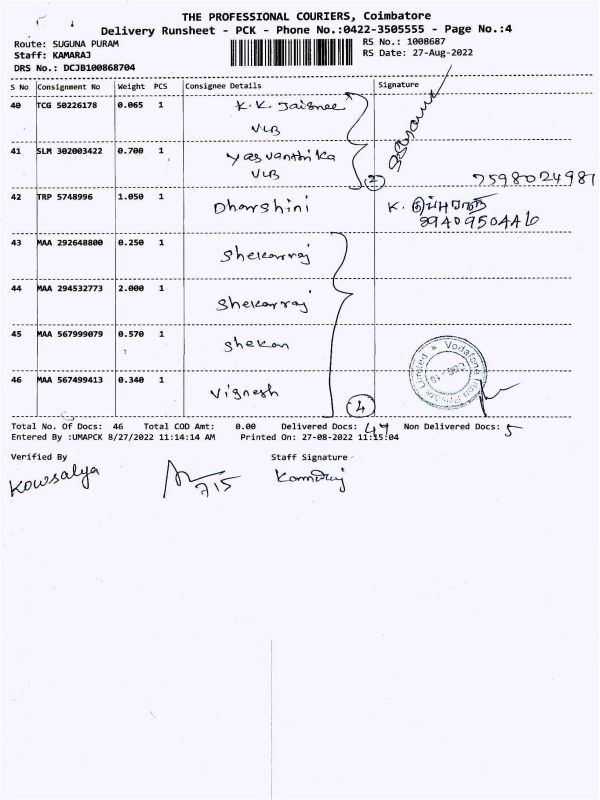 THE PROFESSIONAL COURIERS, Coimbatore
Delivery Runsheet - PCK - Phone No.:0422-3505555 - Page No.:4
Route: SUGUNA PURAM
Staff: KAMARAJ
DRS No.: DCJB100868704
RS No.: 1008687
RS Date: 27-Aug-2022
S No Consignment No Weight PCS Consignee Details Signature
40 TCG 50226178 0.065 1 K.K. Jaisnee
VLB
41 SLM 302003422 0.700 1 Yasvanthika
VLB
2 7598024981
42 TRP 5748996 1.050 1 Dharshini K.
9940950446
43 MAA 292648800 0.250 1 Shekarraj
44 MAA 294532773 2.000 1 Shekarraj
45 MAA 567999079 0.570 1 Shekar
46 MAA 567499413 0.340 1 Vignesh
4
Vodafone Idea Limited
Total No. Of Docs: 46 Total COD Amt: 0.00 Delivered Docs: 47 Non Delivered Docs: 5
Entered By :UMAPCK 8/27/2022 11:14:14 AM Printed On: 27-08-2022 11:15:04
Verified By Staff Signature
Kowsalya 715 Kamaraj